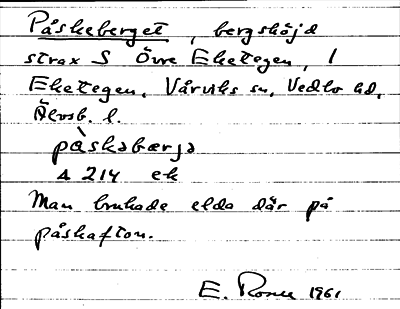 Påskeberget, bergshöjd
strax S Övre Eketegen, 1
Eketegen, Vårviks sn, Vedbo hd,
Älvsb. l.
påskəbærjə
Δ 214 ek
Man brukade elda där på
påskafton.
E. 1961